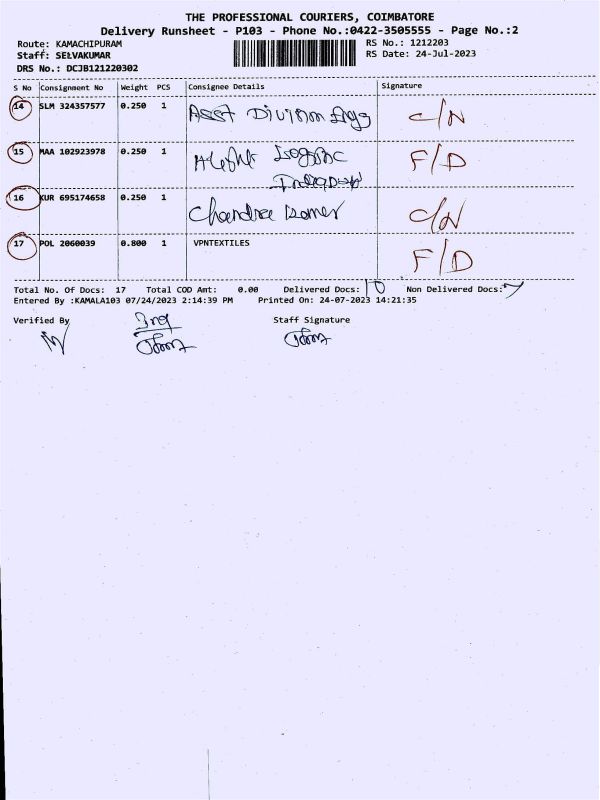 THE PROFESSIONAL COURIERS, COIMBATORE
Delivery Runsheet - P103 - Phone No.:0422-3505555 - Page No.:2
Route: KAMACHIPURAM RS No.: 1212203
Staff: SELVAKUMAR RS Date: 24-Jul-2023
DRS No.: DCJB121220302
S No Consignment No Weight PCS Consignee Details Signature
14 SLM 324357577 0.250 1 Asst Division Engg C/N
15 MAA 102923978 0.250 1 F/D
16 KUR 695174658 0.250 1 Chandra C/N
17 POL 2060039 0.800 1 VPNTEXTILES F/D
Total No. Of Docs: 17 Total COD Amt: 0.00 Delivered Docs: 10 Non Delivered Docs: 7
Entered By :KAMALA103 07/24/2023 2:14:39 PM Printed On: 24-07-2023 14:21:35
Verified By Staff Signature